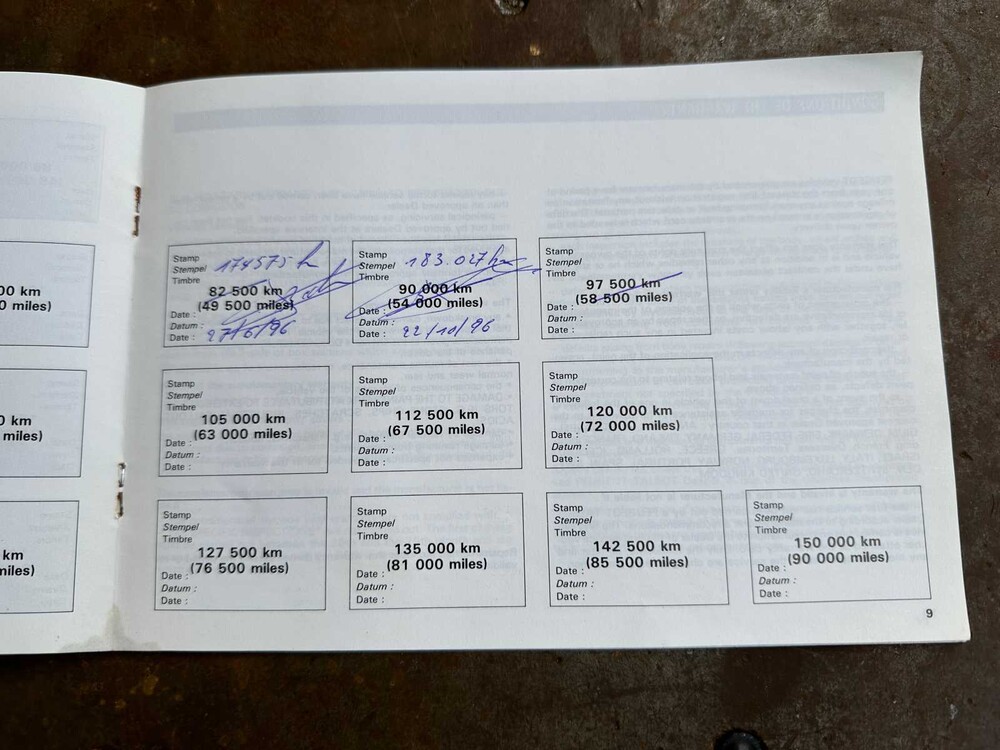 Stamp 174575 km
Stempel
Timbre
82 500 km
(49 500 miles)
Date :
Datum :
Date : 27/6/96
Stamp
Stempel 183.027 km
Timbre
90 000 km
(54 000 miles)
Date :
Datum :
Date : 22/10/96
Stamp
Stempel
Timbre
97 500 km
(58 500 miles)
Date :
Datum :
Date :
00 km
0 miles)
Stamp
Stempel
Timbre
105 000 km
(63 000 miles)
Date :
Datum :
Date :
Stamp
Stempel
Timbre
112 500 km
(67 500 miles)
Date :
Datum :
Date :
Stamp
Stempel
Timbre
120 000 km
(72 000 miles)
Date :
Datum :
Date :
0 km
miles)
Stamp
Stempel
Timbre
127 500 km
(76 500 miles)
Date :
Datum :
Date :
Stamp
Stempel
Timbre
135 000 km
(81 000 miles)
Date :
Datum :
Date :
Stamp
Stempel
Timbre
142 500 km
(85 500 miles)
Date :
Datum :
Date :
Stamp
Stempel
Timbre
150 000 km
(90 000 miles)
Date :
Datum :
Date :
km
miles)
9